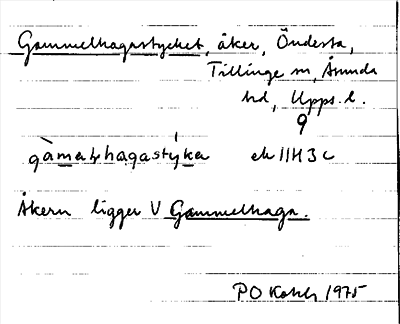 Gammelhagastycket, åker, Öndersta,
Tillinge sn, Åsunda
hd, Upps. l.
9
gàmalhagastýka ek 11H 3c
Åkern ligger V Gammelhaga.
PO 1975